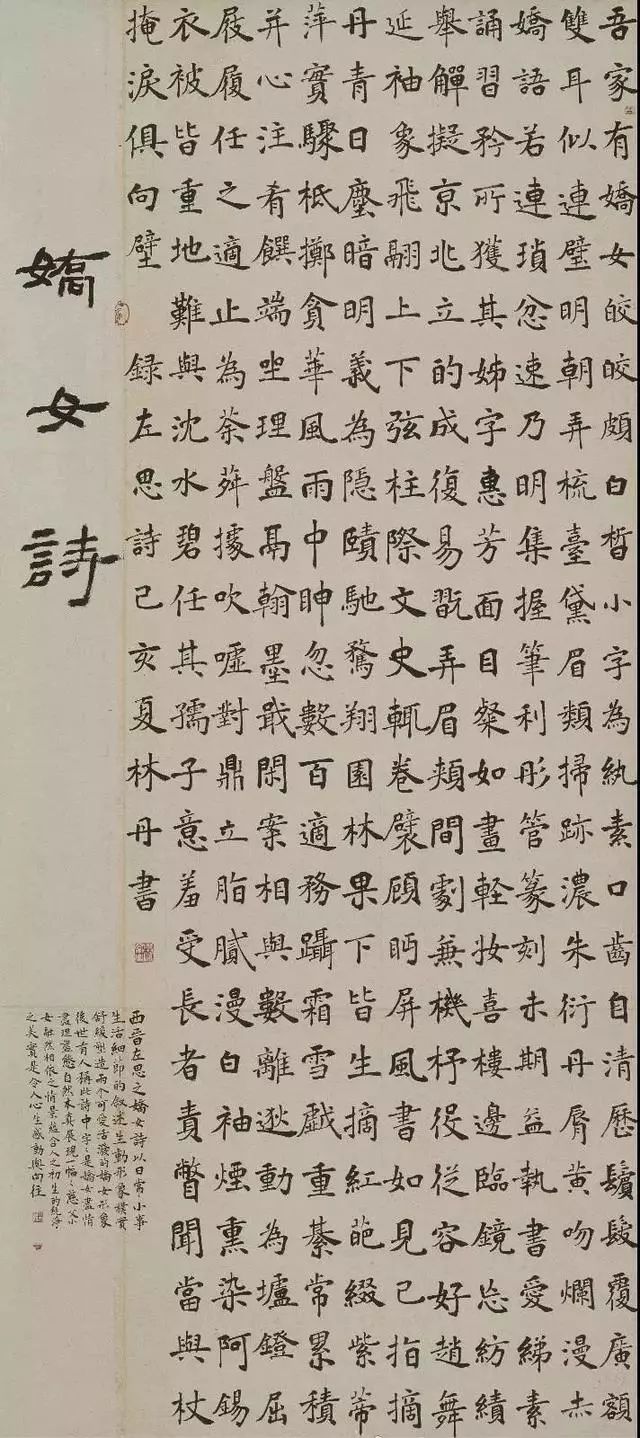 吾家有嬌女皎皎頗白皙小字為紈素口齒自清歷鬢髮覆廣額
雙耳似連璧明朝弄梳臺黛眉類掃跡濃朱衍丹脣黃吻爛漫赤
嬌語若連瑣忿速乃明集握筆利彤管篆刻未期益執書愛綈素
誦習矜所獲其姊字惠芳面目粲如畫輕妝喜樓邊臨鏡忘紡績
舉觶擬京兆立的成復易翫弄眉頰間劇兼機杼役從容好趙舞
延袖象飛翮上下弦柱際文史輒卷襞顧眄屏風書如見已指摘
丹青日塵暗明義為隱賾馳騖翔園林果下皆生摘紅葩綴紫蒂
萍實驟柢擲貪華風雨中眒忽數百適務躡霜雪戲重綦常累積
并心注肴饌端坐理盤鬲翰墨戢閑案相與數離逖動為壚鐙屈
屐履任之適止為荼荈據吹噓對鼎立脂膩漫白袖煙熏染阿錫
衣被皆重地難與沈水碧任其孺子意羞受長者責瞥聞當與杖
掩淚俱向壁 録左思詩己亥夏林丹書
嬌女詩
西晉左思之嬌女詩以日常小事
生活細節的敘述生動形象樸實
舒緩塑造兩个可愛活潑的嬌女形象
後世有人稱此詩中字々是嬌女盡情
盡理盡態自然本真展現一幅慈父小
女融然相依之情景蘊含人之初生的純淨
之美實是令人心生感動與向往